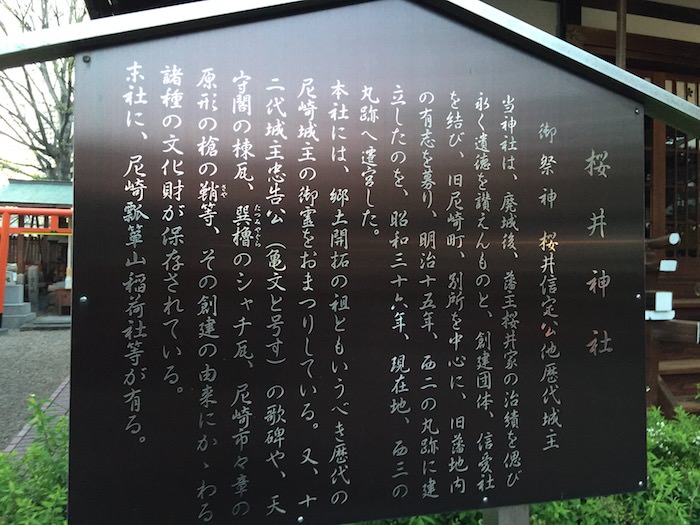 桜井神社
御祭神 桜井信定公他歴代城主
当神社は、廃城後、藩主桜井家の治績を偲び
永く遺徳を讃えんものと、創建団体、信愛社
を結び、旧尼崎町、別所を中心に、旧藩地内
の有志を募り、明治十五年、西二の丸跡に建
立したのを、昭和三十六年、現在地、西三の
丸跡へ遷宮した。
本社には、郷土開拓の祖ともいうべき歴代の
尼崎城主の御霊をおまつりしている。又、十
二代城主忠告公(亀文と号す)の歌碑や、天
守閣の棟瓦、巽櫓のシャチ瓦、尼崎市々章の
原形の槍の鞘等、その創建の由来にかゝわる
諸種の文化財が保存されている。
末社に、尼崎瓢箪山稲荷社等が有る。
たつみやぐら
さや